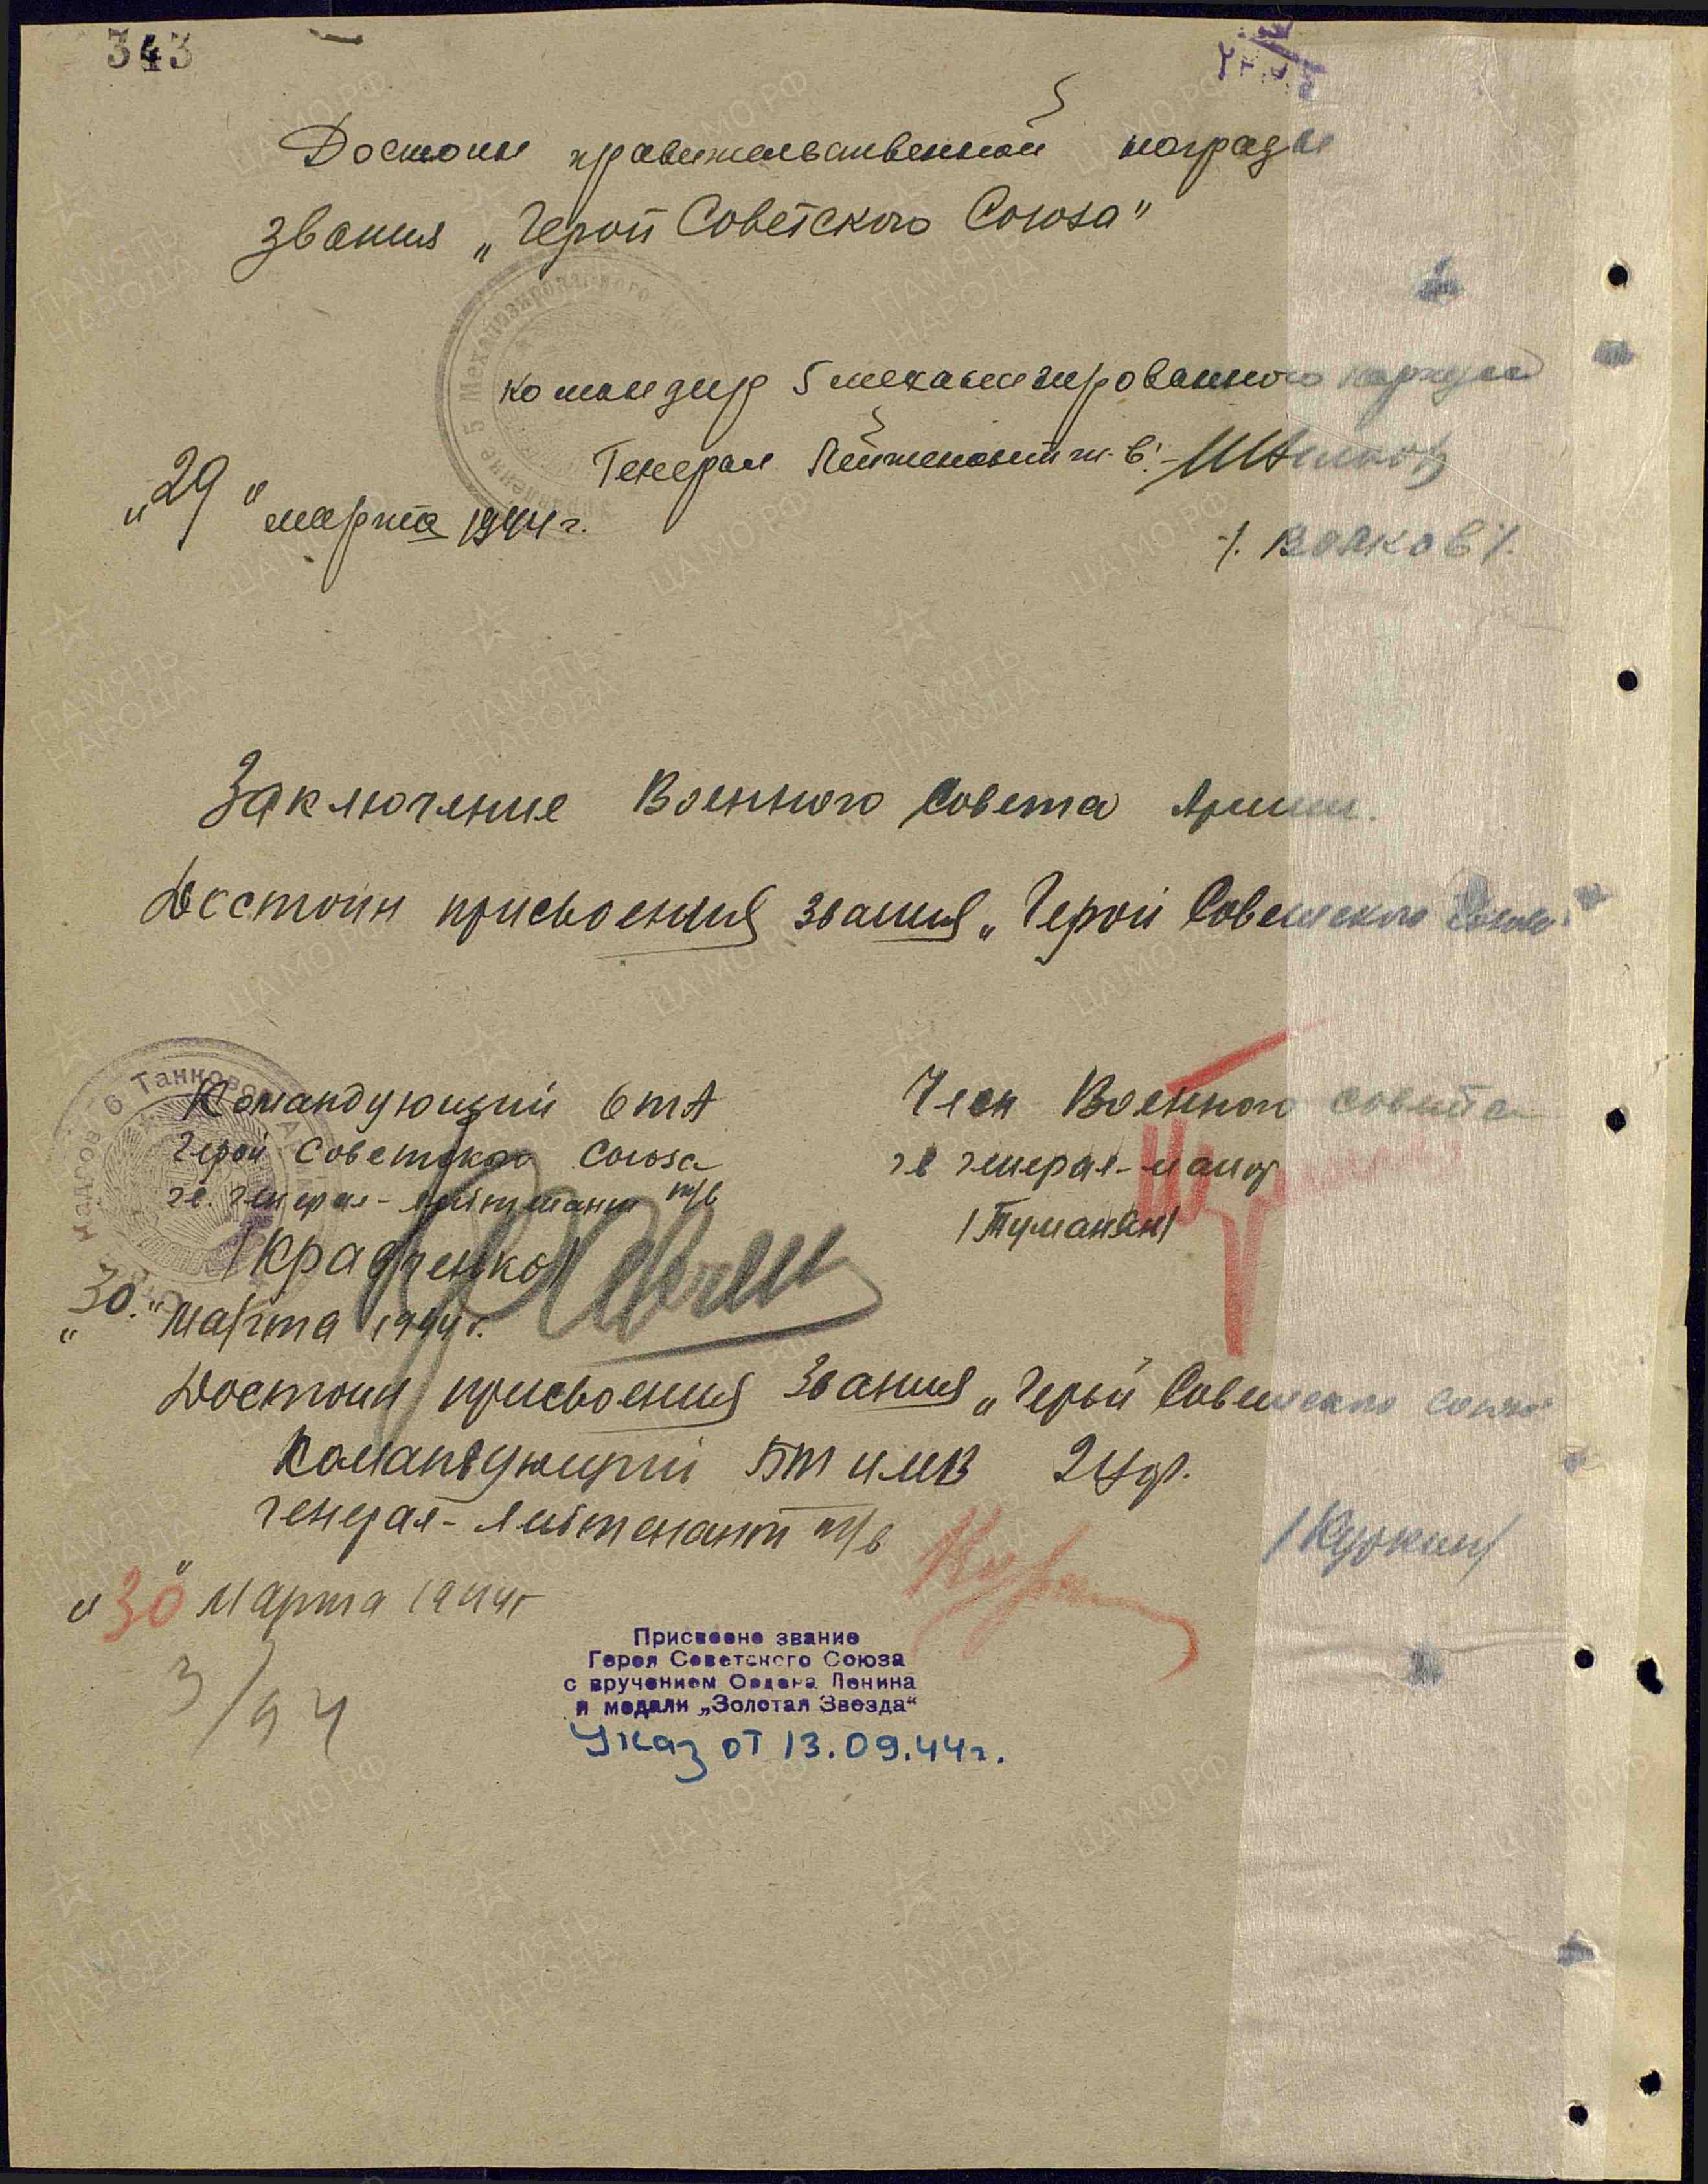 343
Достоин правительственной награды
звания „Герой Советского Союза"
Командир 5 механизированного корпуса
Генерал Лейтенант т.в.
/. Волков /.
„29" марта 1944 г.
Заключение Военного Совета Армии.
Достоин присвоения звания „Герой Советского Союза"
Командующий 6 ТА
Герой Советского Союза
гв. генерал-лейтенант т/в
/Кравченко/
„30." Марта 1944 г.
Член Военного совета
гв генерал-майор
/Туманян/
Достоин присвоения звания „Герой Советского Союза"
Командующий БТ и МВ 2 Уф.
генерал-лейтенант т/в
/Куркин/
„30" Марта 1944 г
3/94
Присвоено звание
Героя Советского Союза
с вручением Ордена Ленина
и медали „Золотая Звезда"
Указ от 13.09.44 г.